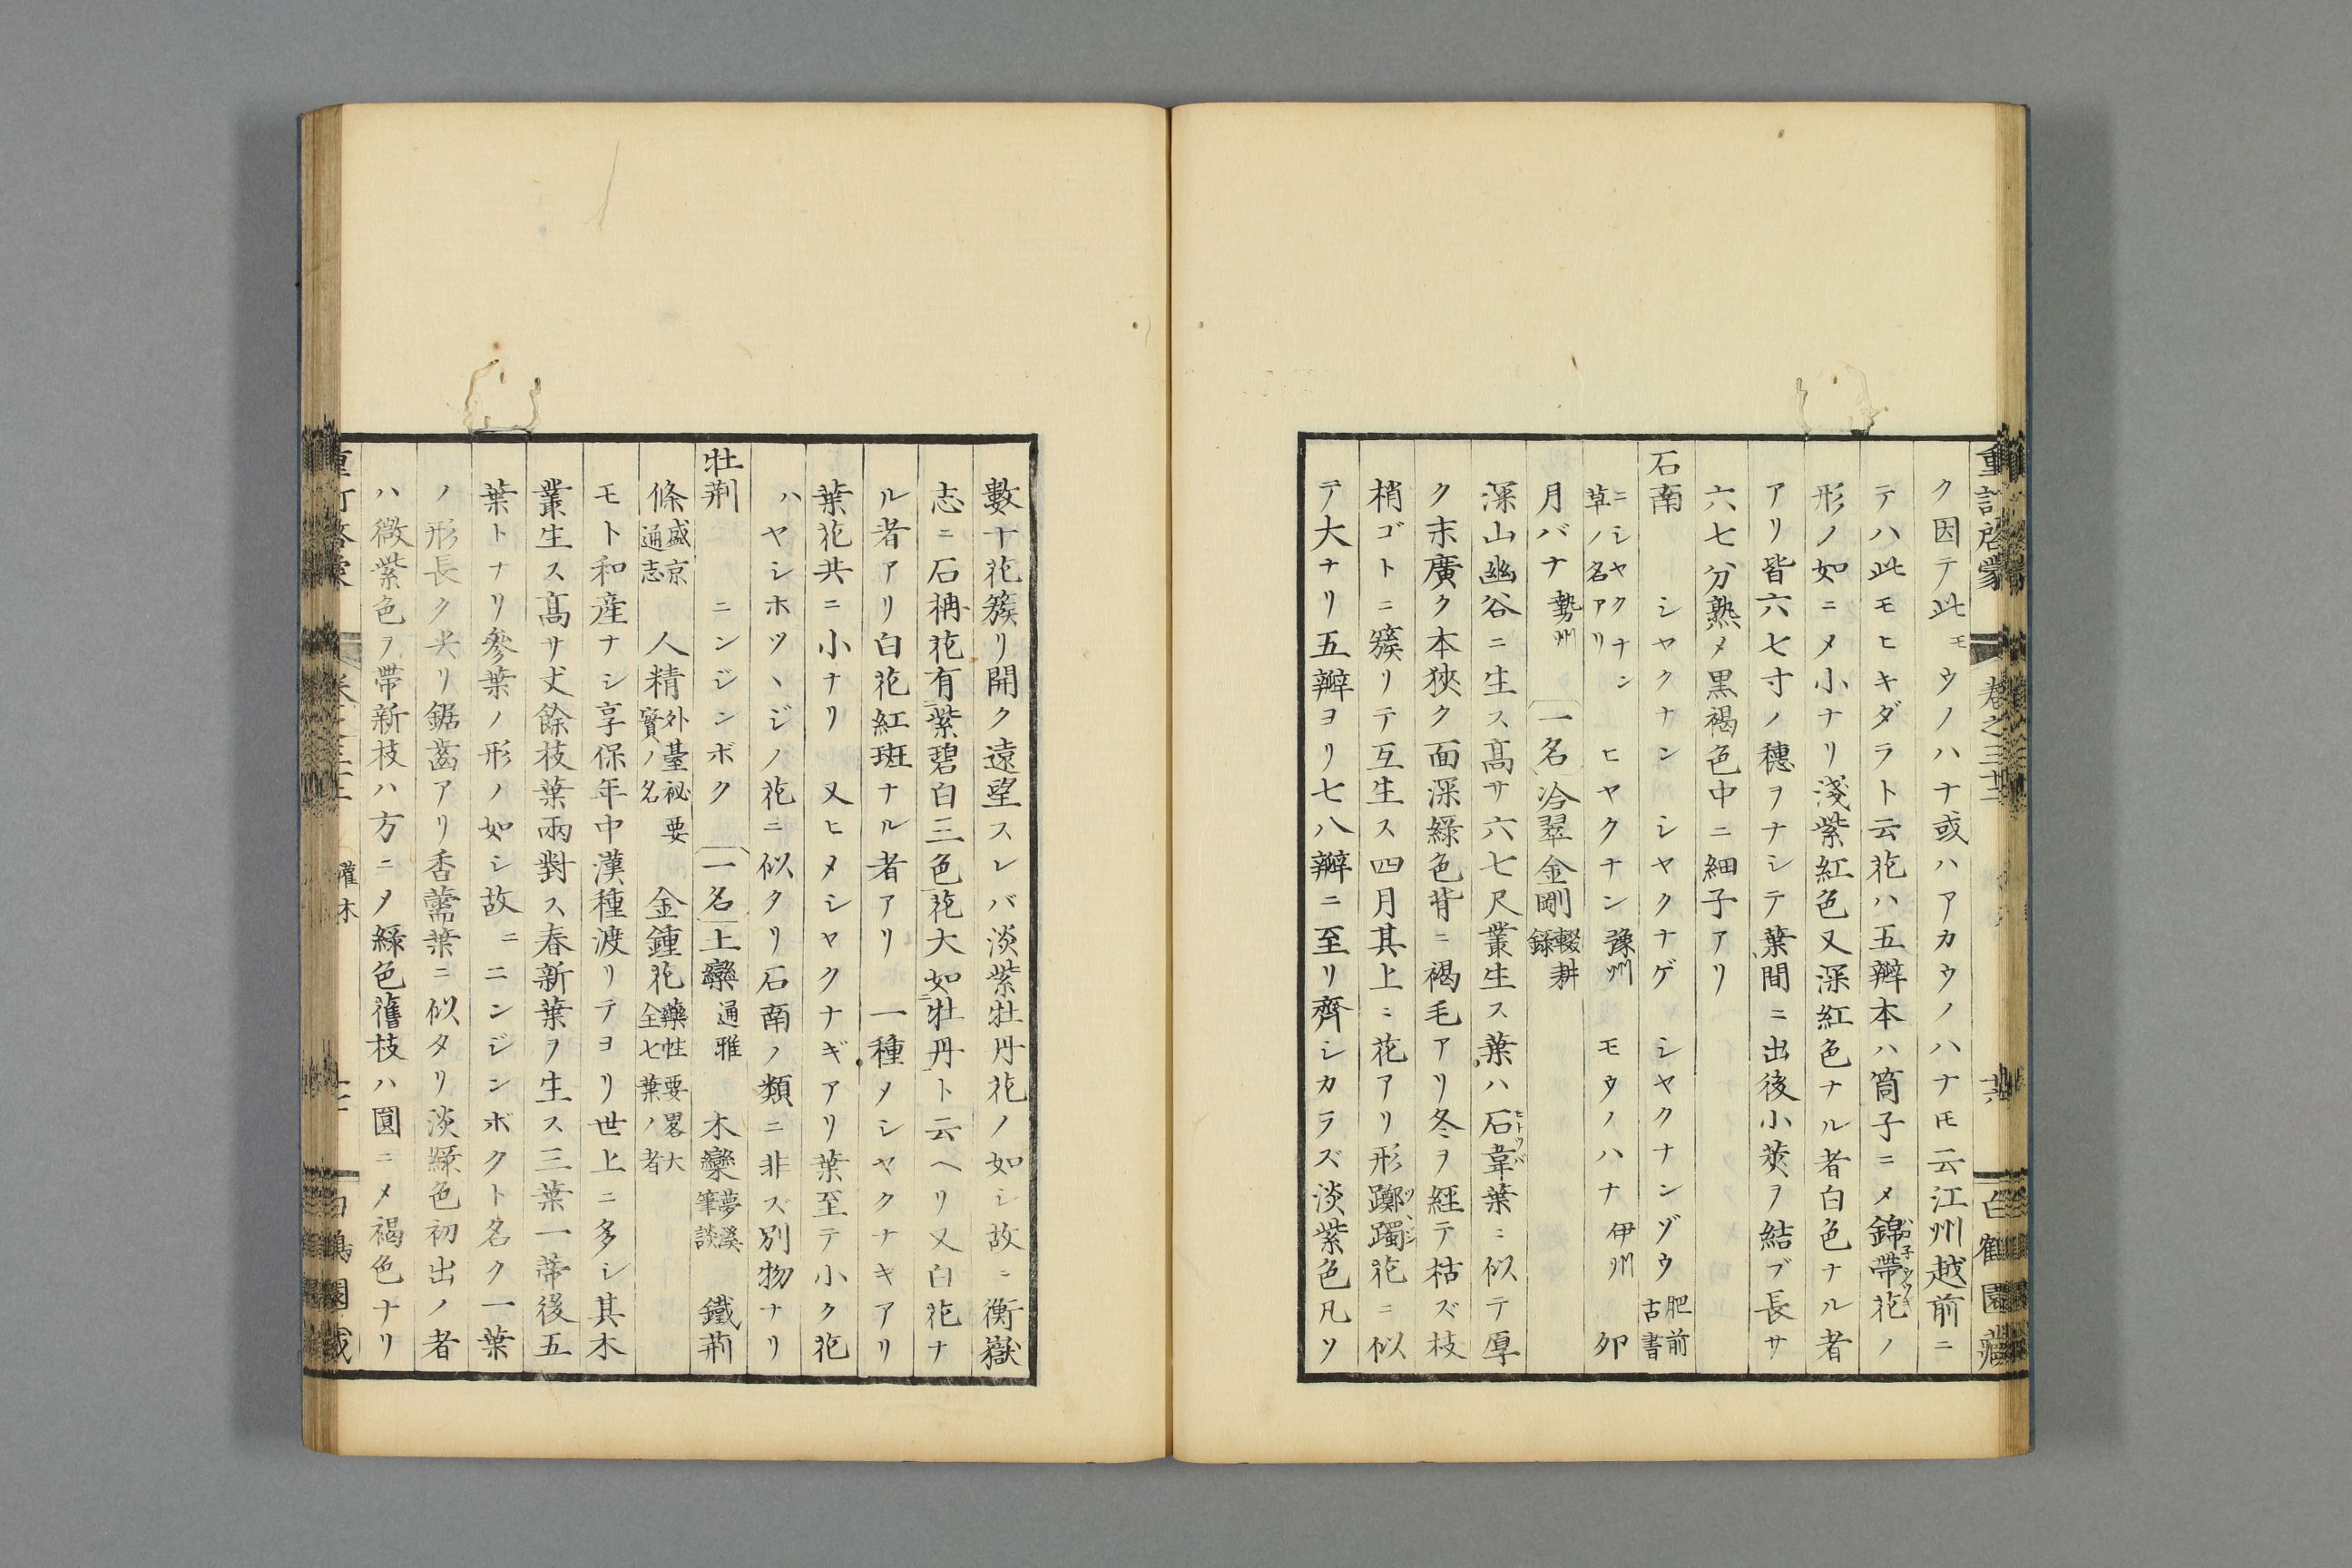 重訂啓蒙 卷之三十二 十六 白鶴園藏
ク因テ此モウノハナ或ハアカウノハナ𪜈云江州越前ニ
テハ此モヒキダラト云花ハ五瓣本ハ筒子ニ〆錦帶花ノ
形ノ如ニ〆小ナリ淺紫紅色又深紅色ナル者白色ナル者
アリ皆六七寸ノ穗ヲナシテ葉間ニ出後小莢ヲ結ブ長サ
六七分熟〆黒褐色中ニ細子アリ
石南 シヤクナン シヤクナゲ シヤクナンゾウ 肥前古書
ニシヤクナン草ノ名アリ ヒヤクナン 豫州 モウノハナ 伊州 卯
月バナ 勢州 一名 冷翠金剛 輟耕録
深山幽谷ニ生ス高サ六七尺叢生ス葉ハ石韋葉ニ似テ厚
ク末廣ク本狹ク面深緑色背ニ褐毛アリ冬ヲ経テ枯ズ枝
梢ゴトニ簇リテ互生ス四月其上ニ花アリ形躑躅花ニ似
テ大ナリ五瓣ヨリ七八瓣ニ至リ齊シカラズ淡紫色凡ソ
數十花簇リ開ク遠望スレバ淡紫牡丹花ノ如シ故ニ衡嶽
志ニ石楠花有紫碧白三色花大如牡丹ト云ヘリ又白花ナ
ル者アリ白花紅斑ナル者アリ 一種メシヤクナキアリ
葉花共ニ小ナリ 又ヒメシヤクナギアリ葉至テ小ク花
ハヤシホツヽジノ花ニ似タリ石南ノ類ニ非ズ別物ナリ
牡荆 ニンジンボク 一名 土欒 通雅 木欒 夢溪筆談 鐵荊
條 盛京通志 人精 外臺祕要實ノ名 金鍾花 藥性要畧大全七葉ノ者
モト和産ナシ享保年中漢種渡リテヨリ世上ニ多シ其木
叢生ス高サ丈餘枝葉兩對ス春新葉ヲ生ス三葉一蒂後五
葉トナリ參葉ノ形ノ如シ故ニニンジンボクト名ク一葉
ノ形長ク尖リ鋸齒アリ香薷葉ニ似タリ淡緑色初出ノ者
ハ微紫色ヲ帶新枝ハ方ニ〆緑色舊枝ハ圓ニ〆褐色ナリ
灌木